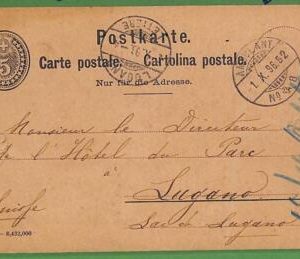 Postkarte.
Carte postale. Cartolina postale.
Nur für die Adresse.
5
LUGANO
LETTERE
1. X. 96.
Monsieur le Directeur
de l'Hôtel du Parc
à
Lugano
Suisse
Lac de Lugano
8,422,000